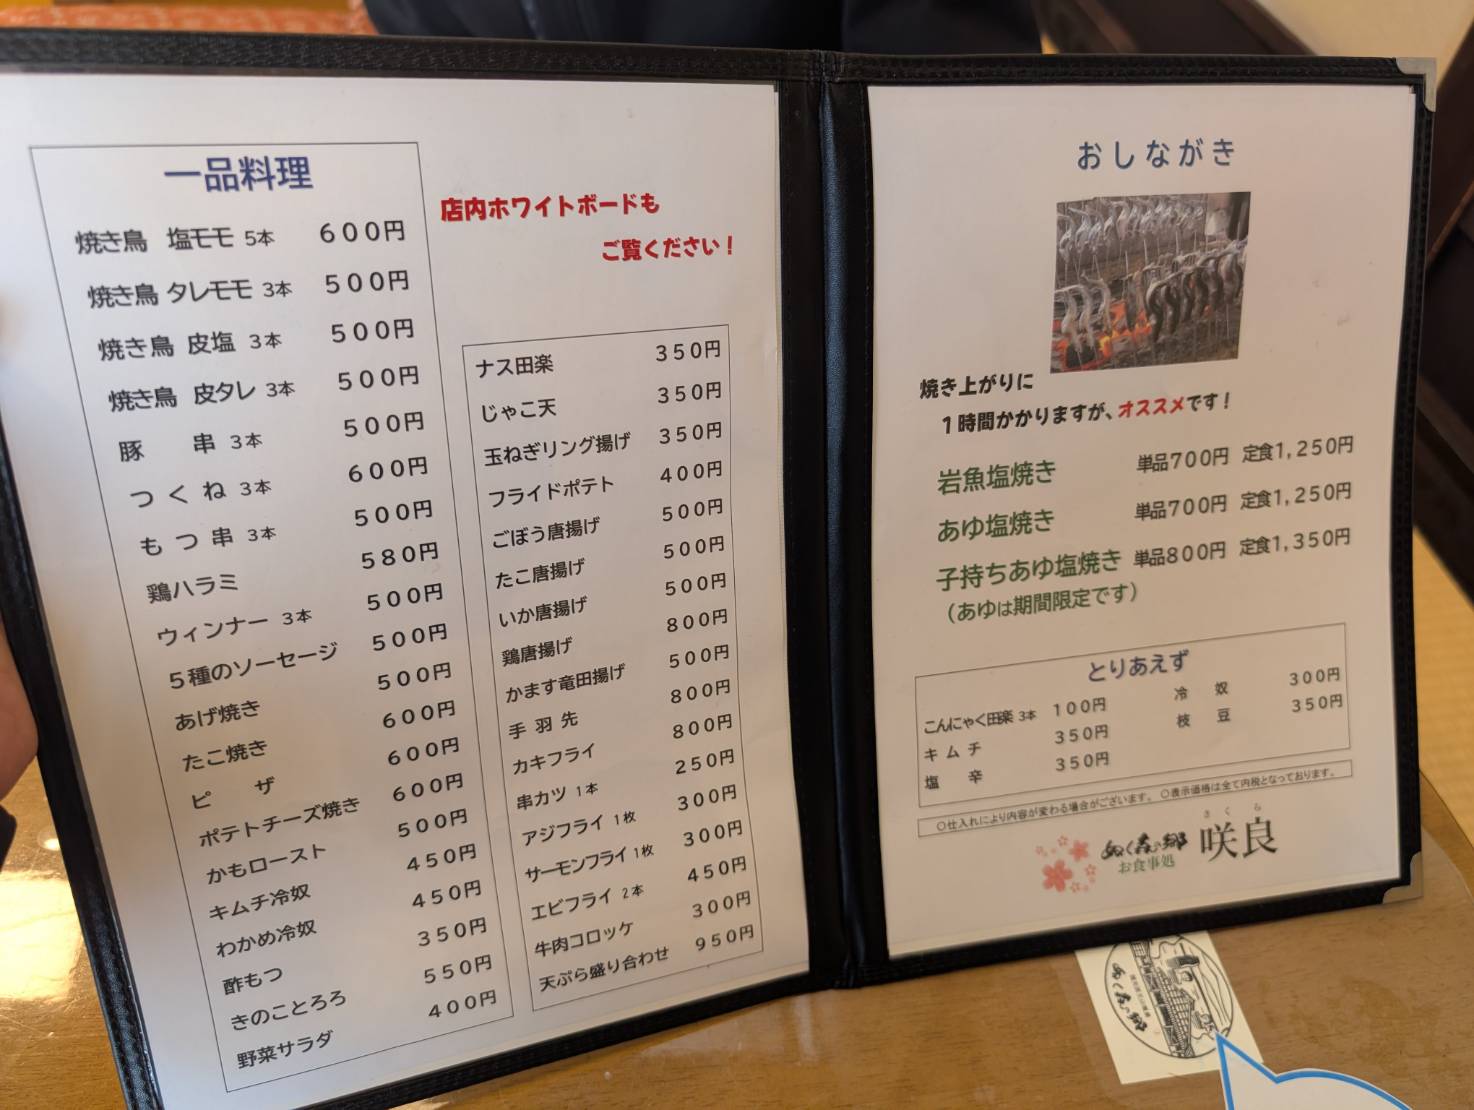 一品料理
焼き鳥 塩モモ 5本 600円
焼き鳥 タレモモ 3本 500円
焼き鳥 皮塩 3本 500円
焼き鳥 皮タレ 3本 500円
豚 串 3本 500円
つくね 3本 600円
もつ串 3本 500円
鶏ハラミ 580円
ウィンナー 3本 500円
5種のソーセージ 500円
あげ焼き 500円
たこ焼き 600円
ピ ザ 600円
ポテトチーズ焼き 600円
かもロースト 500円
キムチ冷奴 450円
わかめ冷奴 450円
酢もつ 350円
きのことろろ 550円
野菜サラダ 400円
店内ホワイトボードも
ご覧ください!
ナス田楽 350円
じゃこ天 350円
玉ねぎリング揚げ 350円
フライドポテト 400円
ごぼう唐揚げ 500円
たこ唐揚げ 500円
いか唐揚げ 500円
鶏唐揚げ 800円
かます竜田揚げ 500円
手羽先 800円
カキフライ 800円
串カツ 1本 250円
アジフライ 1枚 300円
サーモンフライ 1枚 300円
エビフライ 2本 450円
牛肉コロッケ 300円
天ぷら盛り合わせ 950円
おしながき
焼き上がりに
1時間かかりますが、オススメです!
岩魚塩焼き 単品700円 定食1,250円
あゆ塩焼き 単品700円 定食1,250円
子持ちあゆ塩焼き 単品800円 定食1,350円
(あゆは期間限定です)
とりあえず
こんにゃく田楽 3本 100円 冷 奴 300円
キムチ 350円 枝 豆 350円
塩 辛 350円
○仕入れにより内容が変わる場合がございます。 ○表示価格は全て内税となっております。
さくら
ぬく森の郷 咲良
お食事処
ぬく森の郷